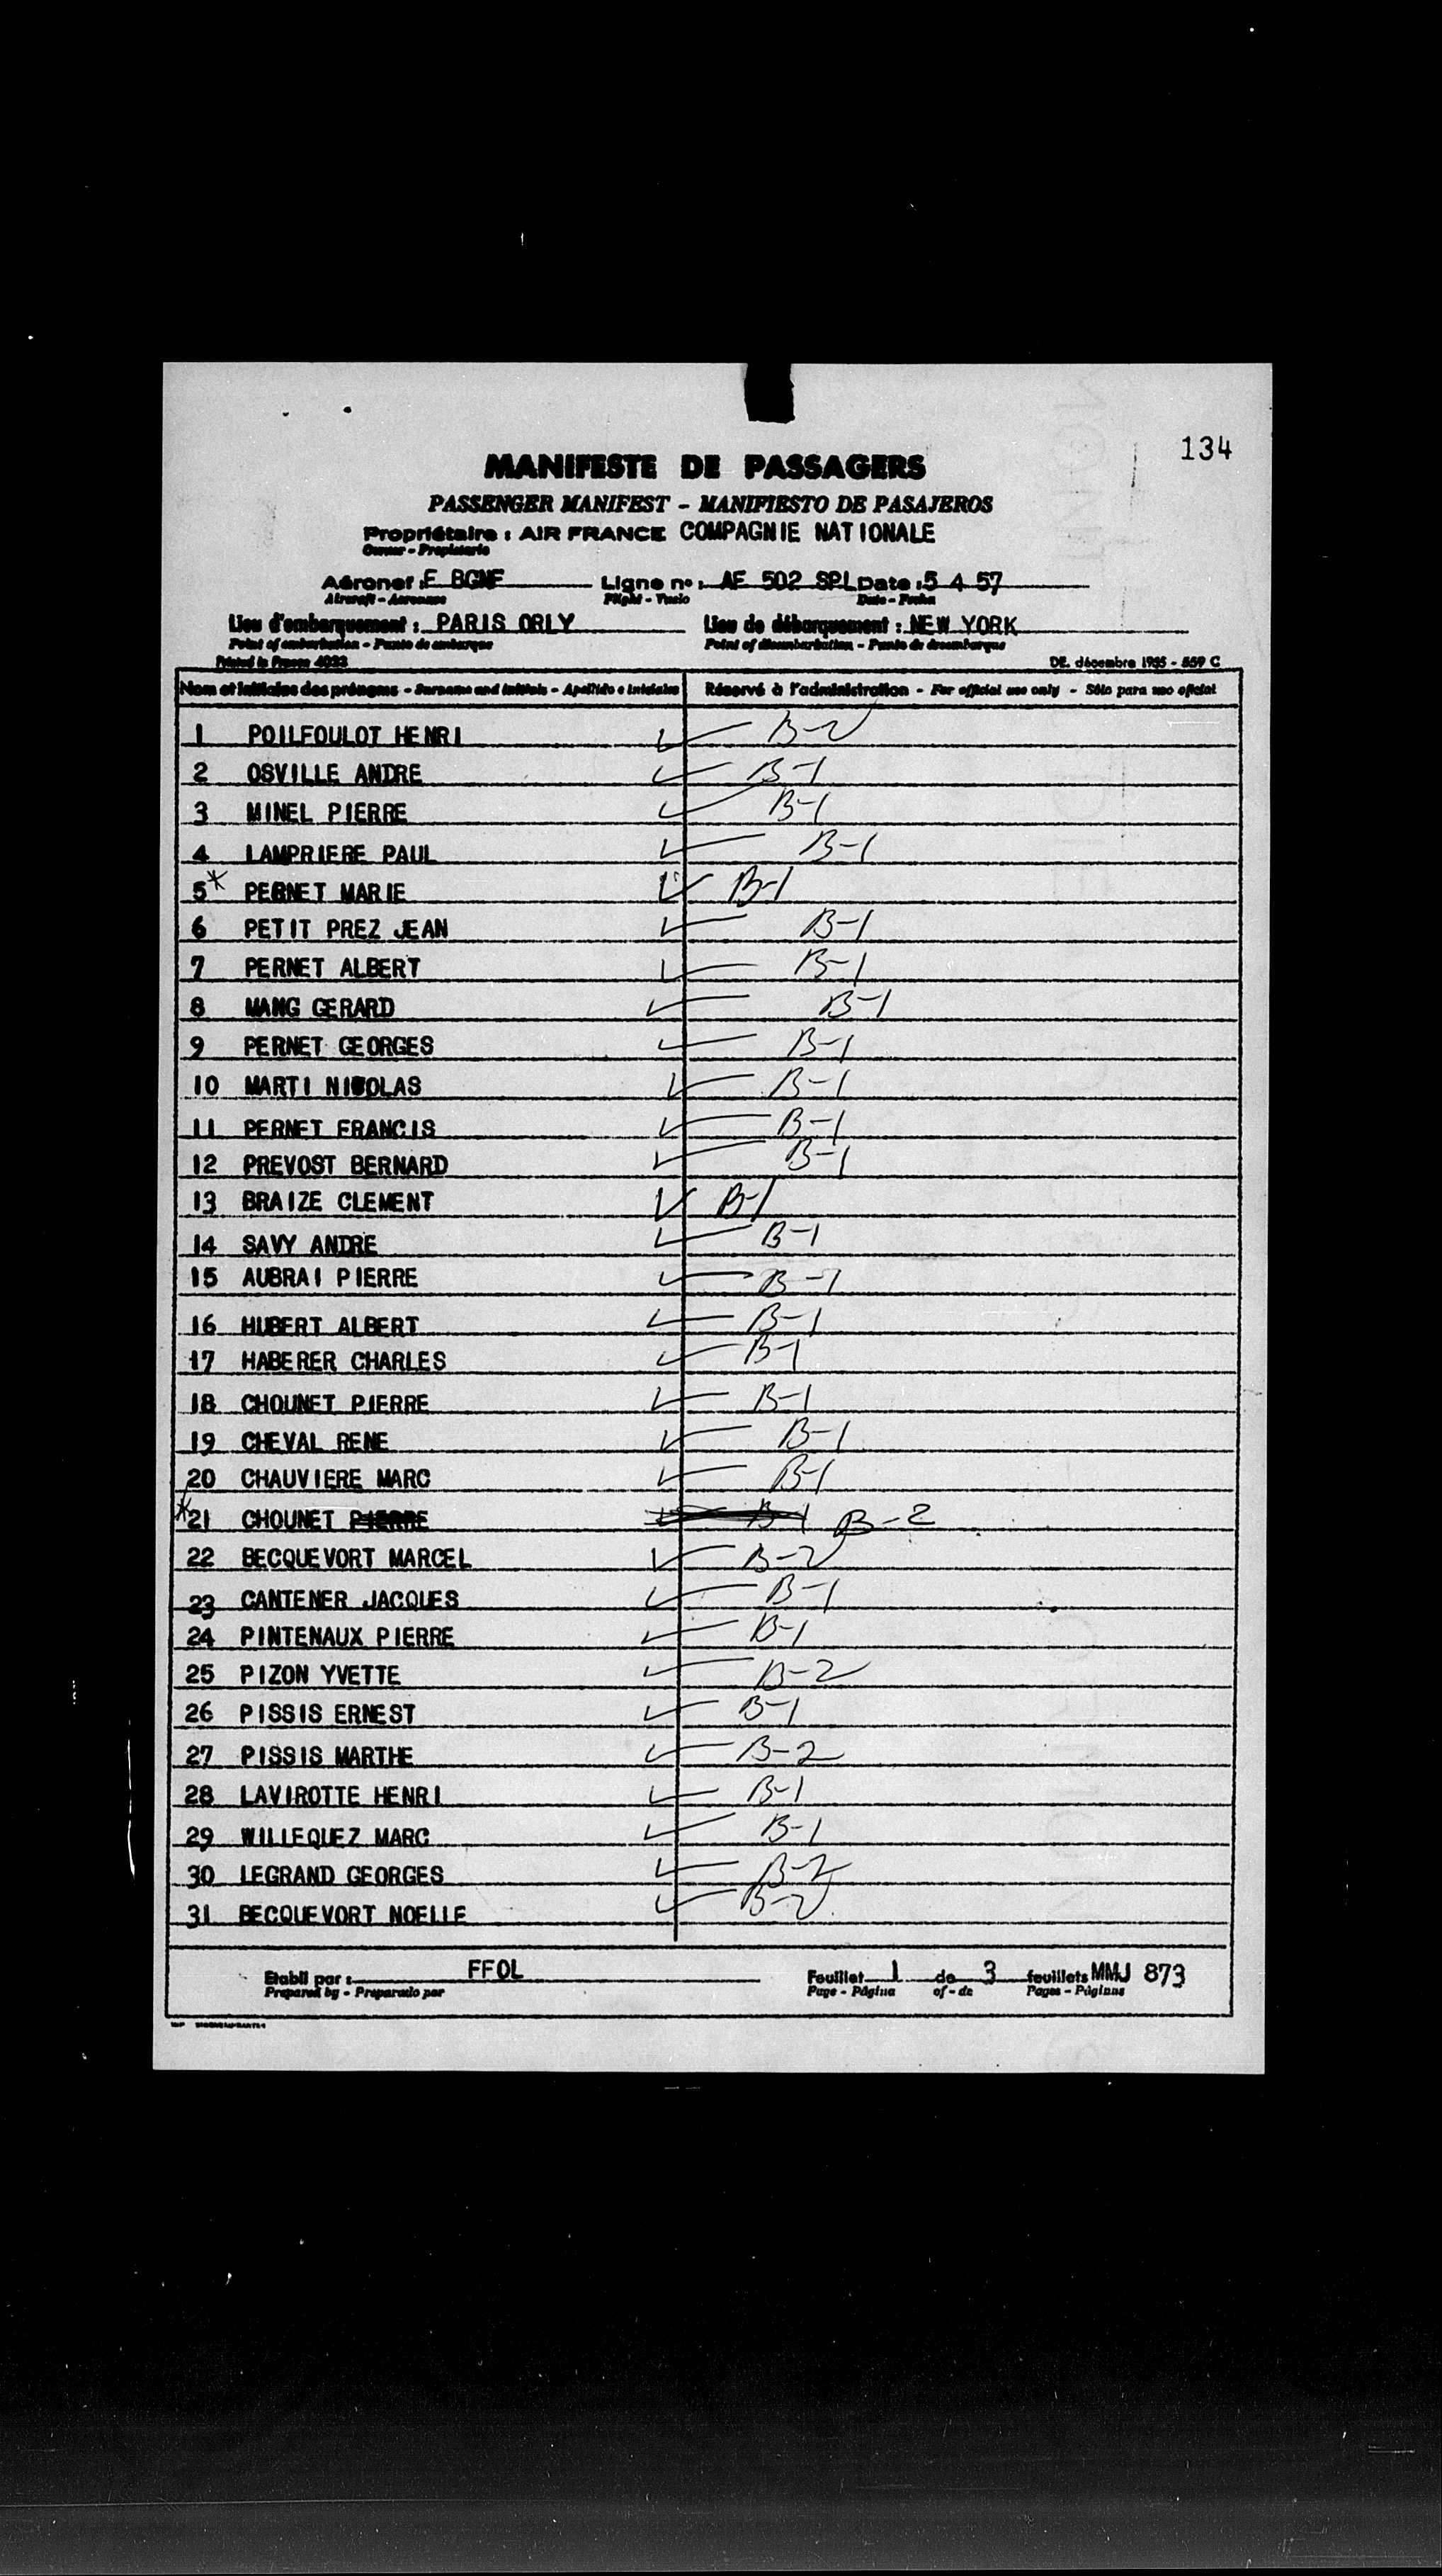 134
MANIFESTE DE PASSAGERS
PASSENGER MANIFEST - MANIFIESTO DE PASAJEROS
Propriétaire : AIR FRANCE COMPAGNIE NATIONALE
Owner - Propietario
Aéronef : F BGNF Ligne nº : AF 502 SPL Date : 5 4 57
Aircraft - Aeronave Flight - Vuelo Date - Fecha
Lieu d'embarquement : PARIS ORLY Lieu de débarquement : NEW YORK
Point of embarkation - Punto de embarque Point of disembarkation - Punto de desembarque
Printed in France 4023 DE. décembre 1955 - 559 C
Nom et initiales des prénoms - Surname and initials - Apellido e iniciales Réservé à l'administration - For official use only - Sólo para uso oficial
1 POILFOULOT HENRI B-2
2 OSVILLE ANDRE B-1
3 MINEL PIERRE B-1
4 LAMPRIERE PAUL B-1
5* PERNET MARIE B-1
6 PETIT PREZ JEAN B-1
7 PERNET ALBERT B-1
8 MANG GERARD B-1
9 PERNET GEORGES B-1
10 MARTI NICOLAS B-1
11 PERNET FRANCIS B-1
12 PREVOST BERNARD B-1
13 BRAIZE CLEMENT B-1
14 SAVY ANDRE B-1
15 AUBRAI PIERRE B-1
16 HUBERT ALBERT B-1
17 HABERER CHARLES B-1
18 CHOUNET PIERRE B-1
19 CHEVAL RENE B-1
20 CHAUVIERE MARC B-1
*21 CHOUNET PIERRE B-1 B-2
22 BECQUEVORT MARCEL B-2
23 CANTENER JACQUES B-1
24 PINTENAUX PIERRE B-1
25 PIZON YVETTE B-2
26 PISSIS ERNEST B-1
27 PISSIS MARTHE B-2
28 LAVIROTTE HENRI B-1
29 WILLEQUEZ MARC B-1
30 LEGRAND GEORGES B-2
31 BECQUEVORT NOELLE B-2
Etabli par : FFOL Feuillet 1 de 3 feuillets MMJ 873
Prepared by - Preparado por Page - Página of - de Pages - Páginas